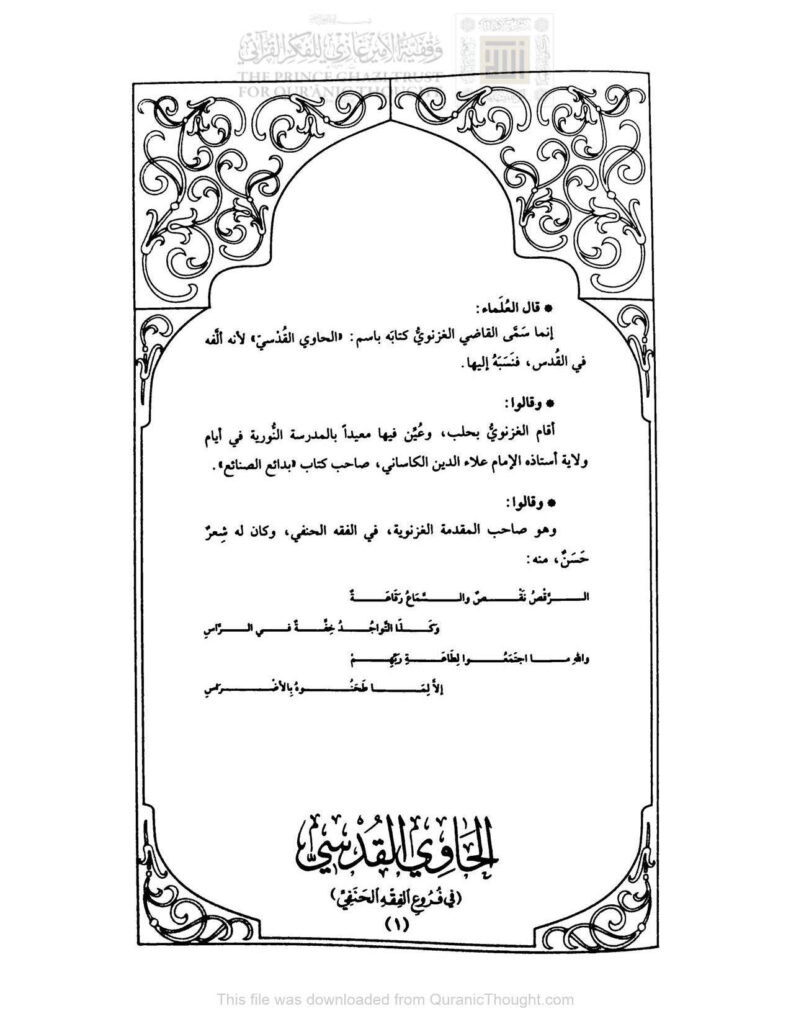 وقفية الأمير غازي للفكر القرآني
THE PRINCE GHAZI TRUST
FOR QUR'ĀNIC THOUGHT
● قال العُلَماء:
إنما سَمَّى القاضي الغزنويُّ كتابَه باسم: «الحاوي القُدْسيّ» لأنه ألَّفه
في القُدس، فنَسَبَهُ إليها.
● وقالوا:
أقام الغزنويُّ بحلب، وعُيِّن فيها معيداً بالمدرسة النُّورية في أيام
ولاية أستاذه الإمام علاء الدين الكاساني، صاحب كتاب «بدائع الصنائع».
● وقالوا:
وهو صاحب المقدمة الغزنوية، في الفقه الحنفي، وكان له شِعرٌ
حَسَنٌ، منه:
الـرَّقْصُ نَقْـصٌ والـسَّمَاعُ رَقَاعَـةٌ
وَكَـذَا التَّواجُـدُ خِفَّـةٌ فـي الـرَّاسِ
واللهِ مـا اجتَمَعُـوا لِطَاعَـةِ رَبِّهِـمْ
إلاَّ لِمَـا طَحَنُـوهُ بِالأضْـرَاسِ
الحَاوِي القُدْسِيّ
(في فُرُوعِ الفِقْهِ الحَنَفِيّ)
(١)
This file was downloaded from QuranicThought.com